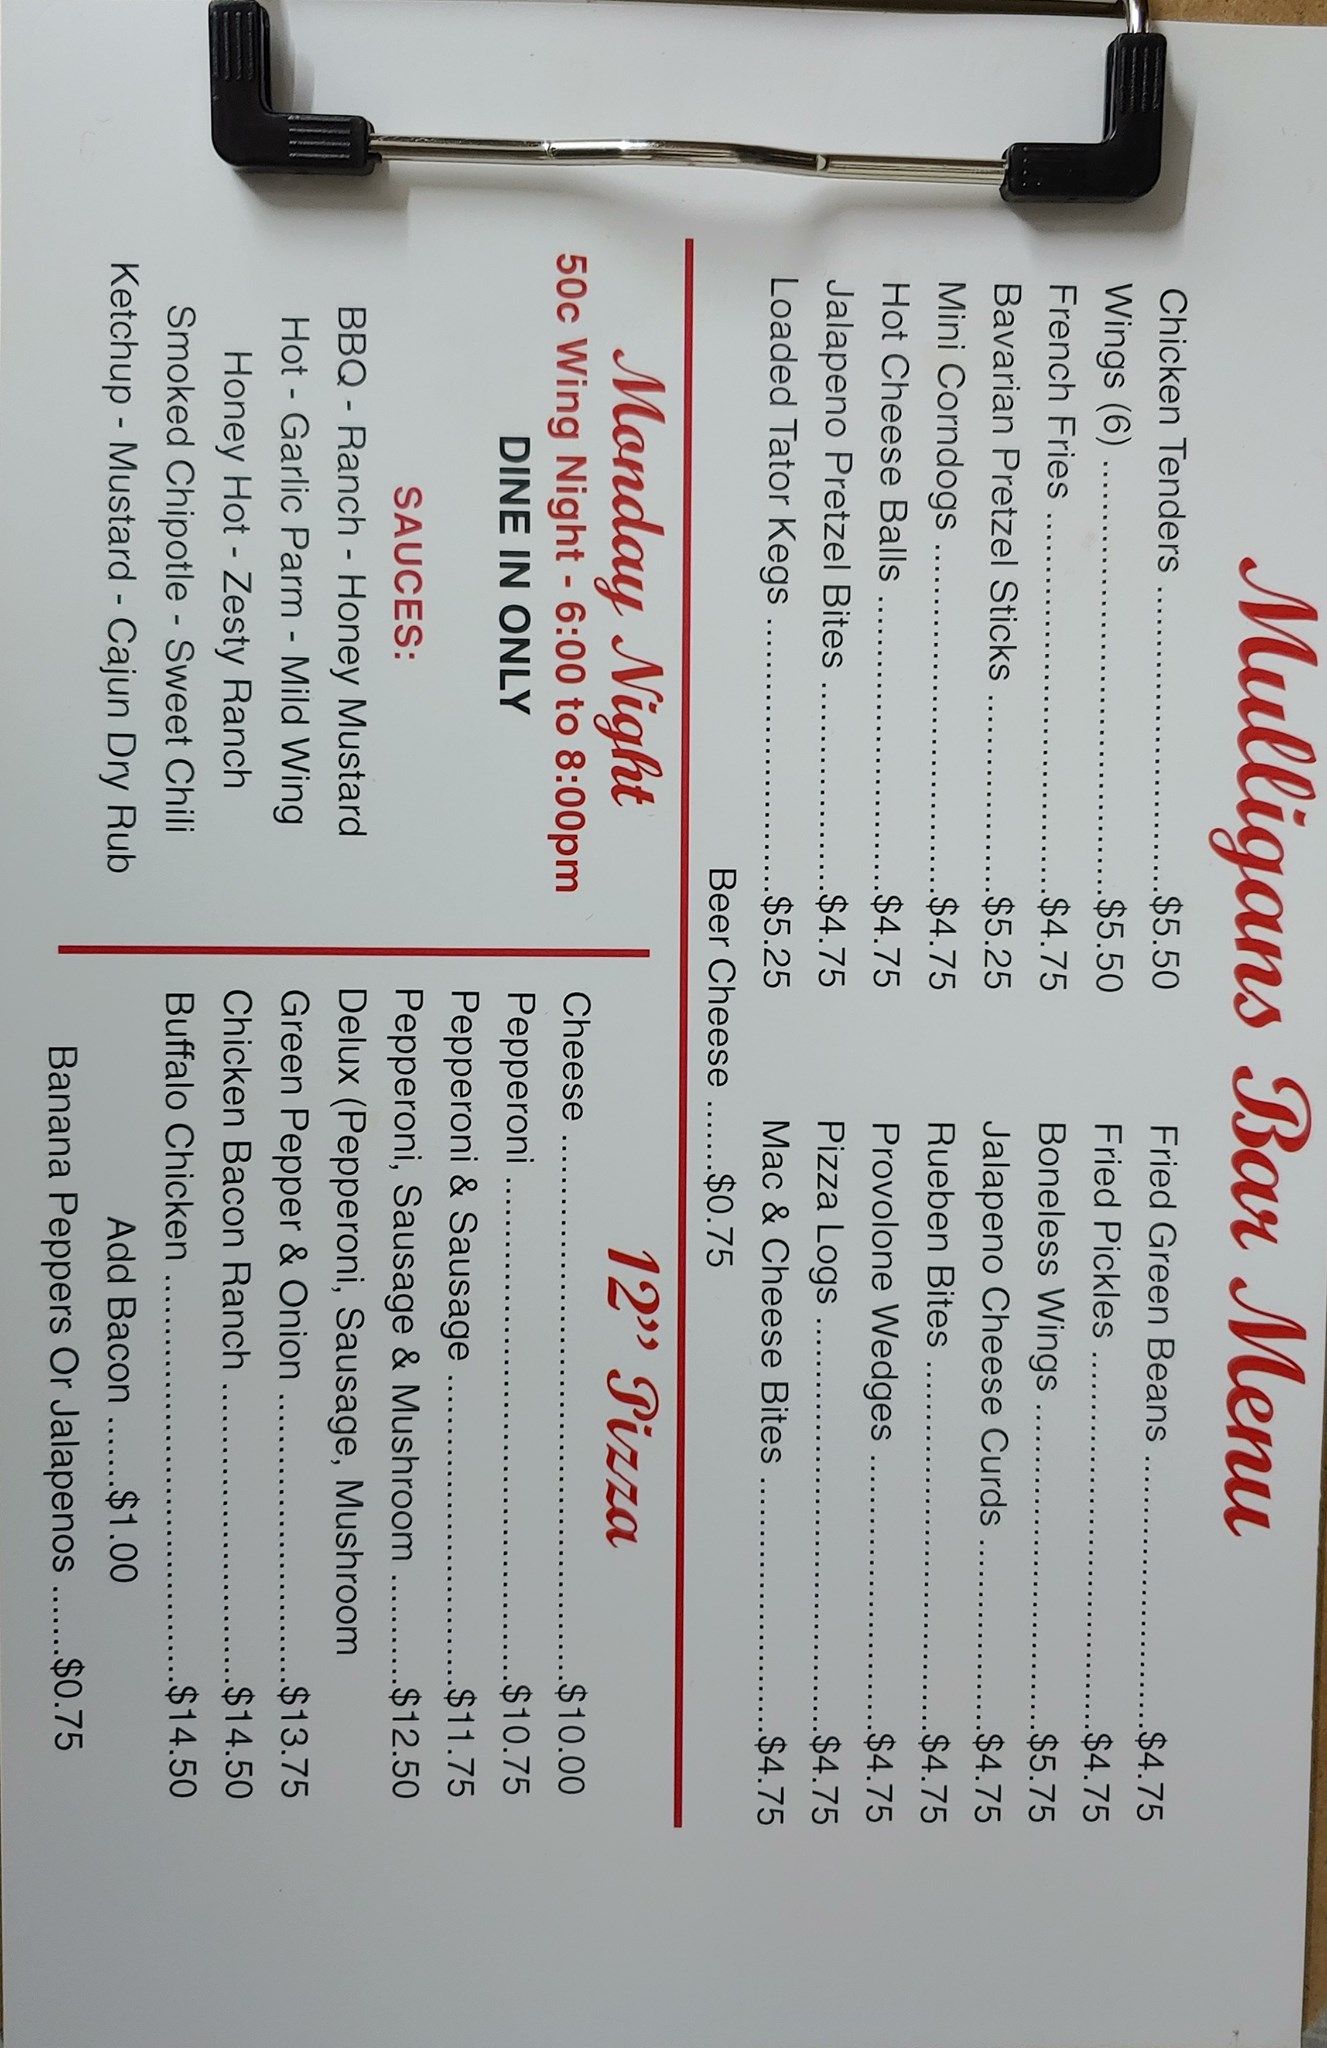 Mulligans Bar Menu
Chicken Tenders ..............................$5.50
Wings (6) ..........................................$5.50
French Fries .....................................$4.75
Bavarian Pretzel Sticks ...................$5.25
Mini Corndogs .................................$4.75
Hot Cheese Balls .............................$4.75
Jalapeno Pretzel Bites ....................$4.75
Loaded Tator Kegs ..........................$5.25
Fried Green Beans ..........................$4.75
Fried Pickles ....................................$4.75
Boneless Wings ...............................$5.75
Jalapeno Cheese Curds .................$4.75
Rueben Bites ...................................$4.75
Provolone Wedges ..........................$4.75
Pizza Logs .......................................$4.75
Mac & Cheese Bites ........................$4.75
Beer Cheese .......$0.75
Monday Night
50c Wing Night - 6:00 to 8:00pm
DINE IN ONLY
SAUCES:
BBQ - Ranch - Honey Mustard
Hot - Garlic Parm - Mild Wing
Honey Hot - Zesty Ranch
Smoked Chipotle - Sweet Chili
Ketchup - Mustard - Cajun Dry Rub
12” Pizza
Cheese .....................................................$10.00
Pepperoni .................................................$10.75
Pepperoni & Sausage ..............................$11.75
Pepperoni, Sausage & Mushroom ..........$12.50
Delux (Pepperoni, Sausage, Mushroom
Green Pepper & Onion ............................$13.75
Chicken Bacon Ranch .............................$14.50
Buffalo Chicken ........................................$14.50
Add Bacon ......$1.00
Banana Peppers Or Jalapenos .......$0.75